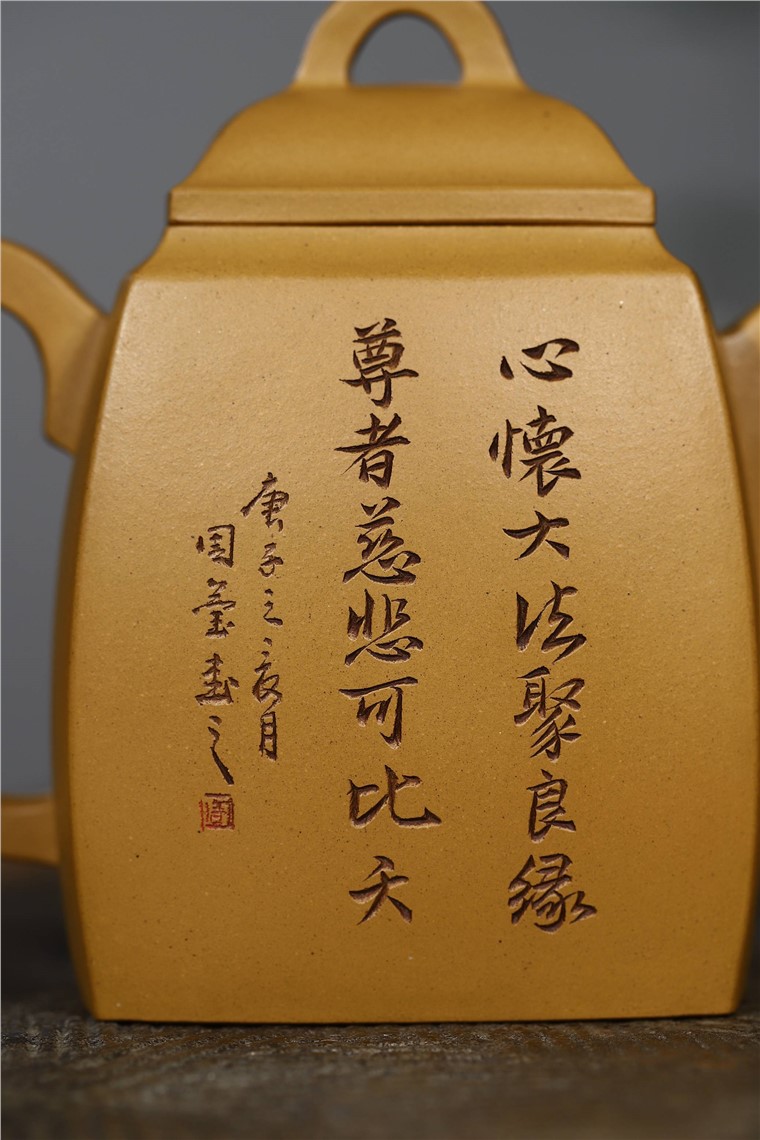 心懷大法聚良緣
尊者慈悲可比天
庚子之夏月
周瑩書之
周